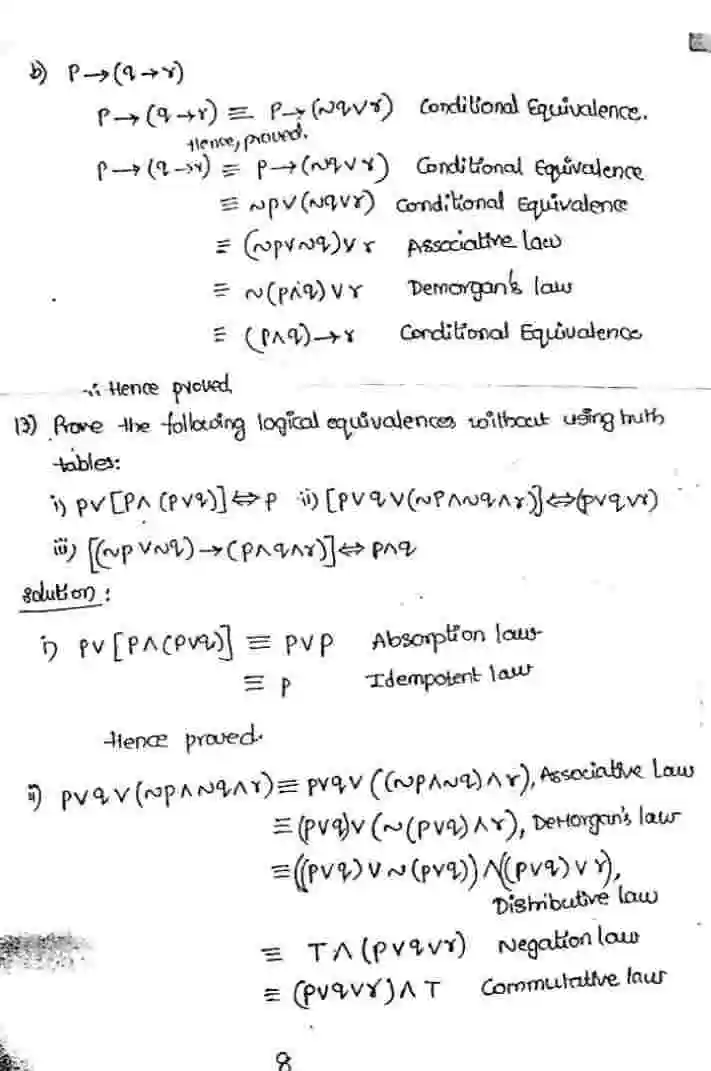 b) P→(q→r)
P→(q→r) ≡ P→(~q∨r) Conditional Equivalence.
Hence, proved.
P→(q→r) ≡ P→(~q∨r) Conditional Equivalence
≡ ~p∨(~q∨r) Conditional Equivalence
≡ (~p∨~q)∨r Associative law
≡ ~(p∧q)∨r Demorgan's law
≡ (p∧q)→r Conditional Equivalence
∴ Hence proved.
13) Prove the following logical equivalences without using truth
tables:
i) p∨[p∧(p∨q)]⇔p ii) [p∨q∨(~p∧~q∧r)]⇔(p∨q∨r)
iii) [(~p∨~q)→(p∧q∧r)]⇔p∧q
solution:
i) p∨[p∧(p∨q)] ≡ p∨p Absorption law
≡ p Idempotent law
Hence proved.
ii) p∨q∨(~p∧~q∧r) ≡ p∨q∨((~p∧~q)∧r), Associative Law
≡ (p∨q)∨(~(p∨q)∧r), DeMorgan's law
≡ ((p∨q)∨~(p∨q))∧((p∨q)∨r),
Distributive law
≡ T∧(p∨q∨r) Negation law
≡ (p∨q∨r)∧T Commutative law
8